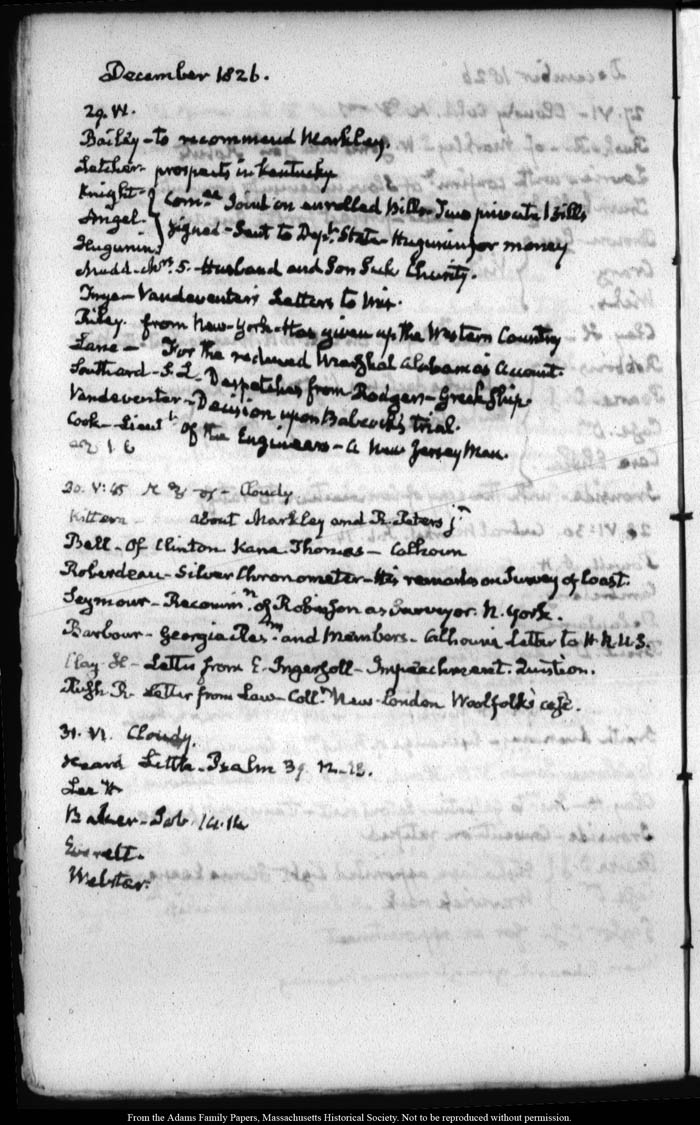 December 1826.
29. VI.
Bailey - to recommend Markley.
Letcher - prospects in Kentucky
Knight - Com.ee Joint on enrolled Bills - Two private Bills
Angel - signed - Sent to Dept. State - Hugunin for money
Hugunin
Mudd - Mrs. S. - Husband and Son Seek Charity.
Inga - Vandeventer's Letters to him.
Riley. from New-York - Has given up the Western Country
Lane - For the reduced Marshal Alabama's Account.
Southard - S. L. Despatches from Rodgers - Greek Ship.
Vandeventer - Decision upon Babcock's trial.
Cook - Lieut. of the Engineers - a New Jersey Man.
30. V: 45 - Cloudy
about Markley and R. Peters jr
Bell - Of Clinton Kane Thomas - Calhoun
Roberdeau - Silver Chronometer - His remarks on Survey of Coast.
Seymour - Recomm.n of Robinson as Surveyor. N. York.
Barbour - Georgia Res.ns and Members - Calhoun's Letter to H. R. U. S.
Clay. H - Letter from E. Ingersoll - Impeachment. Question.
Rush. R. Letter from Law - Coll.r New-London Woolfolk's case.
31. VI. Cloudy.
Heard Little - Psalm 39. 12-13.
Lee
Baker - Job. 14. 14
Everett.
Webster.